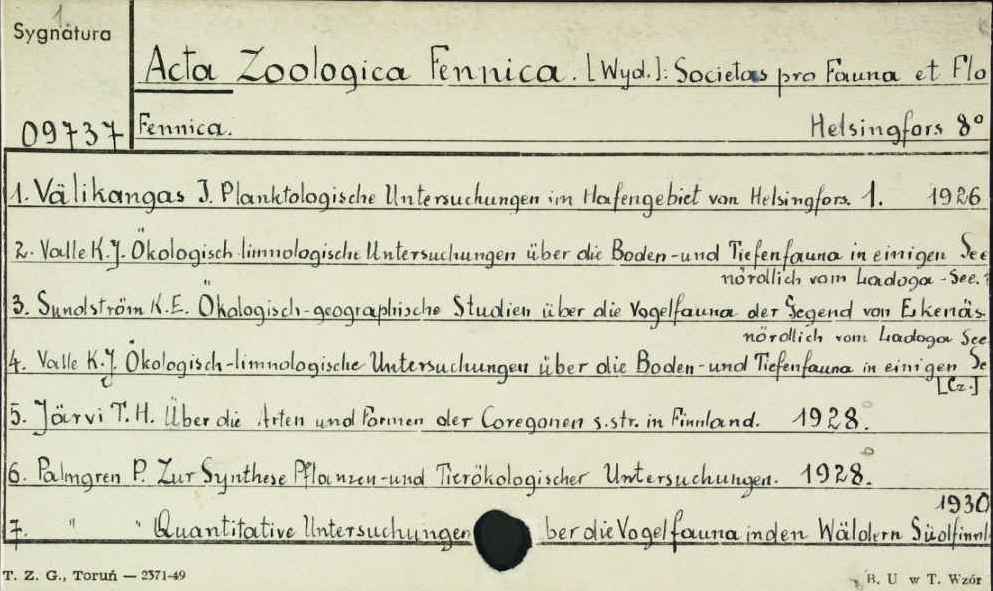 1
Sygnatura
Acta Zoologica Fennica. [Wyd.]: Societas pro Fauna et Flo
09737
Fennica. Helsingfors 8°
1. Välikangas J. Planktologische Untersuchungen im Hafengebiet von Helsingfors. 1. 1926
2. Valle K.J. Ökologisch-limnologische Untersuchungen über die Boden-und Tiefenfauna in einigen See
nördlich vom Ladoga-See.
3. Sundström K.E. Ökologisch-geographische Studien über die Vogelfauna der Gegend von Eskenäs
nördlich vom Ladoga See
4. Valle K.J Ökologisch-limnologische Untersuchungen über die Boden-und Tiefenfauna in einigen Se
[Cz.]
5. Järvi T.H. Über die Arten und Formen der Coregonen s.str. in Finnland. 1928.
6. Palmgren P. Zur Synthese Pflanzen-und Tierökologischer Untersuchungen. 1928.
1930
7. " " Quantitative Untersuchungen ber die Vogelfauna in den Wäldern Südfinnl
T. Z. G., Toruń — 2371-49
B. U w T. Wzór